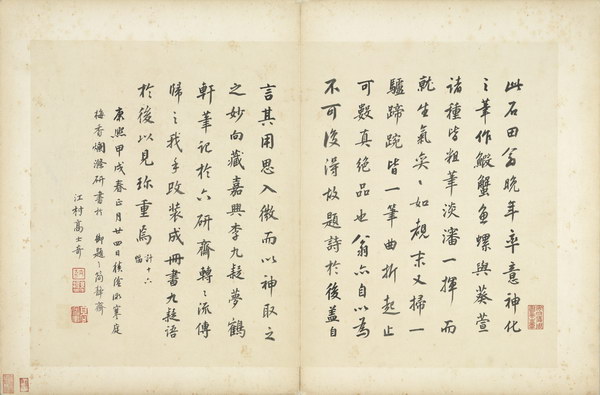 此石田翁晚年率意神化
之筆作鰕蟹魚螺與葵萱
諸種皆粗筆淡瀋一揮而
就生氣奕〻如覩末又掃一
驢蹄踠皆一筆曲折起止
可數真絕品也翁亦自以為
不可復得故題詩於後蓋自
言其用思入微而以神取之
之妙向藏嘉興李九疑夢鶴
軒筆記於六研齋轉〻流傳
歸之我手改裝成冊書九疑語
於後以見珍重焉 計十六幅
康熙甲戌春正月廿四日積
梅香 研書於 御題〻簡靜齋
江村高士奇